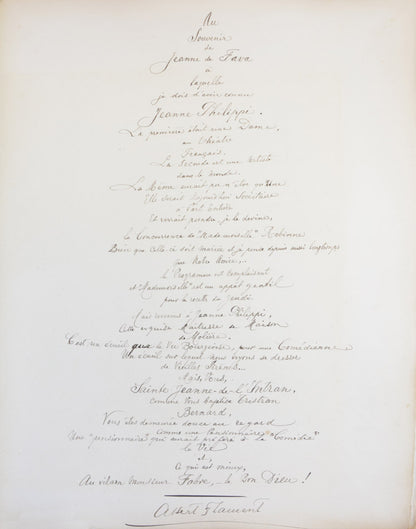 Au
Souvenir
de
Jeanne de Fava
à
laquelle
je dois d'avoir connu
Jeanne Philippi.
La première était une Dame,
au Théatre
Français.
La Seconde est une Artiste
dans le monde.
La même aurait pu n'être qu'une
Elle serait aujourd'hui Sociétaire
à Part Entière
Et voirait prendre, je le devine,
la Concurrence de "Mademoiselle" Robinne
Bien que celle ci soit mariée et je pense depuis aussi longtemps
que Notre Hôtesse,..
le Programme est complaisant
et Mademoiselle" est un appât gentil
pour la recette du Jeudi.
Mais revenons à Jeanne Philippi,
Cette exquise Maîtresse de Maison
de Molière.
C'est un écueil que la Vie Bourgeoise, pour une Comédienne
Un écueil sur lequel nous voyons se dresser
de Vieilles Sirènes...
Mais, Vous,
Sainte Jeanne-de-l'Intran,
comme vous baptisa Tristan
Bernard,
Vous êtes demeurée douce au regard
Comme une Pensionnaire
Une "pensionnaire" qui aurait préféré à la "Comédie"
la Vie
et,
Ce qui est mieux,
Au vilain monsieur Fabre, le Bon Dieu!
Albert Flament